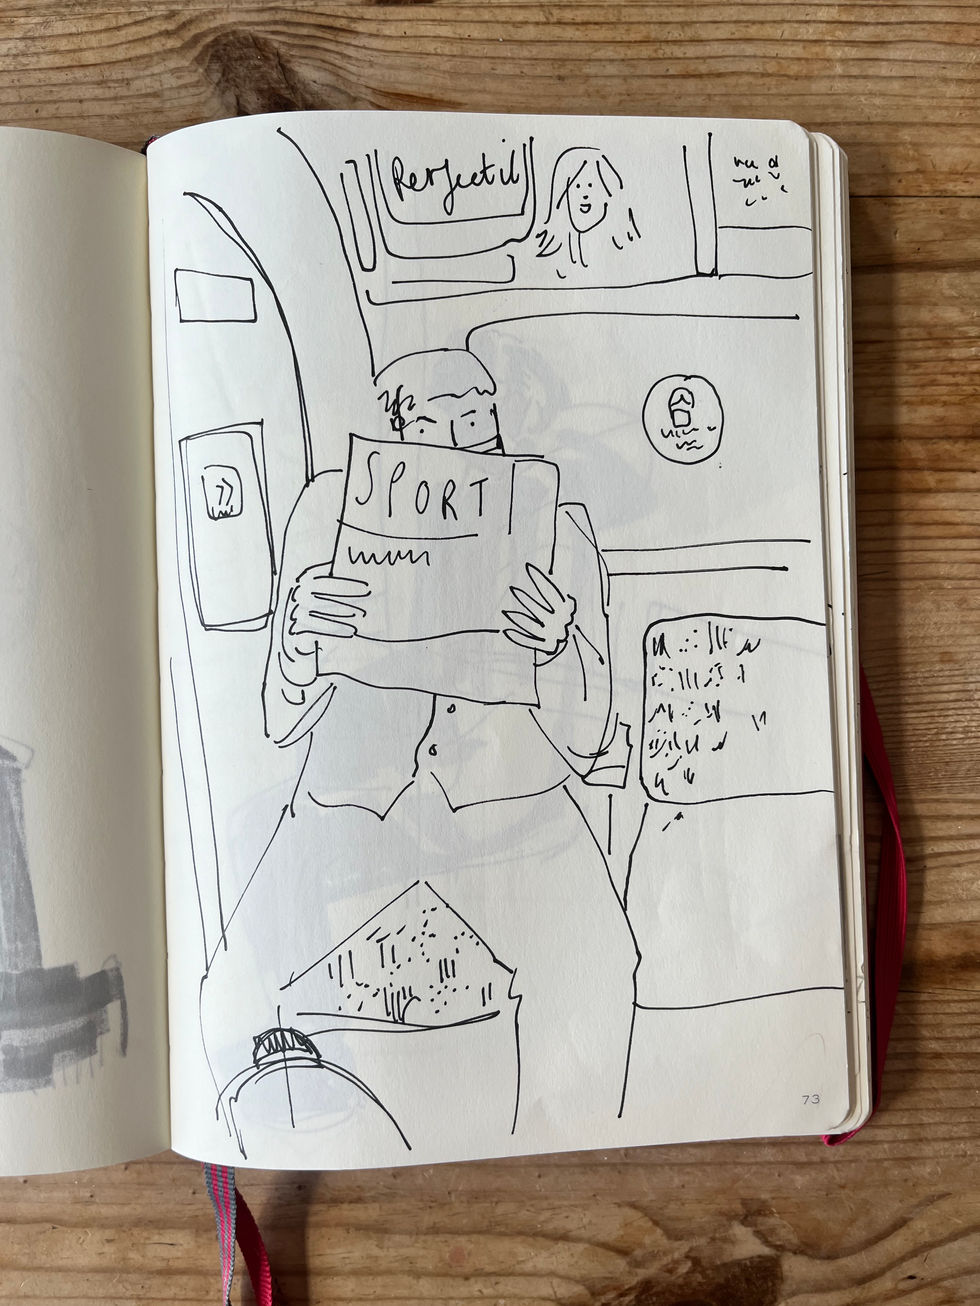 Perfectil
SPORT
73